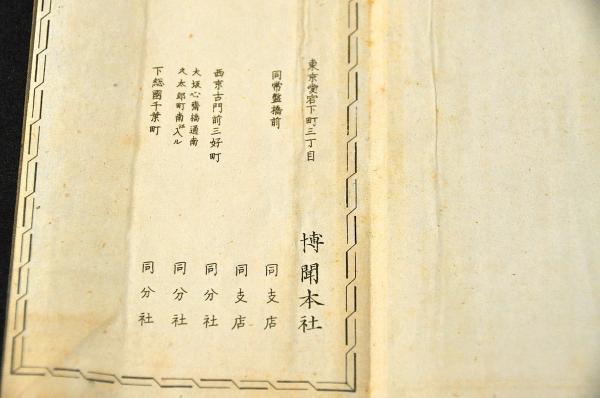 東京愛宕下町三丁目 博聞本社
同常盤橋前 同支店
同支店
西京古門前三好町 同分社
大坂心齋橋通南久太郎町南ヘ入ル 同分社
下総國千葉町 同分社